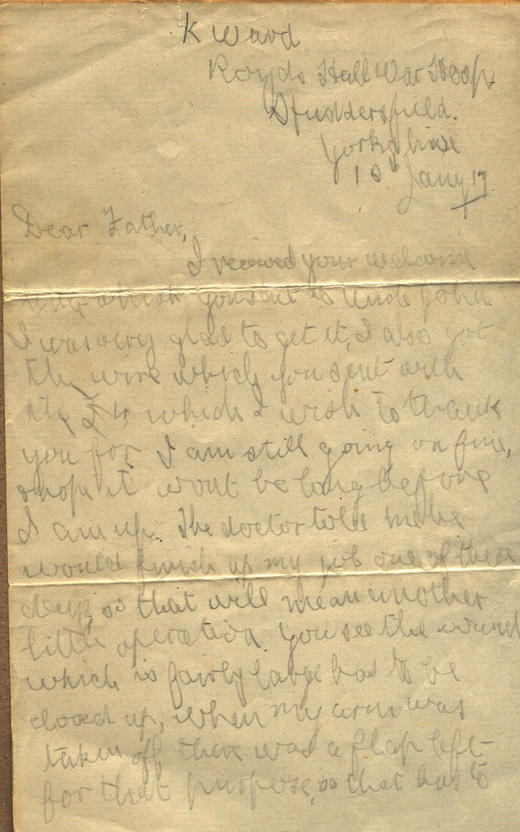 K Ward
Royds Hall War Hosp.
Huddersfield.
Yorkshire
10th Jany 17
Dear Father,
I received your welcome
letter which you sent to Uncle John
I was very glad to get it, I also got
the wire which you sent with
the £4, which I wish to thank
you for I am still going on fine,
& hope it wont be long before
I am up. The doctor told me he
would finish up my job one of these
days, so that will mean another
little operation. You see the wound
which is fairly large has to be
closed up, when my arm was
taken off there was a flap left
for that purpose, so that has to